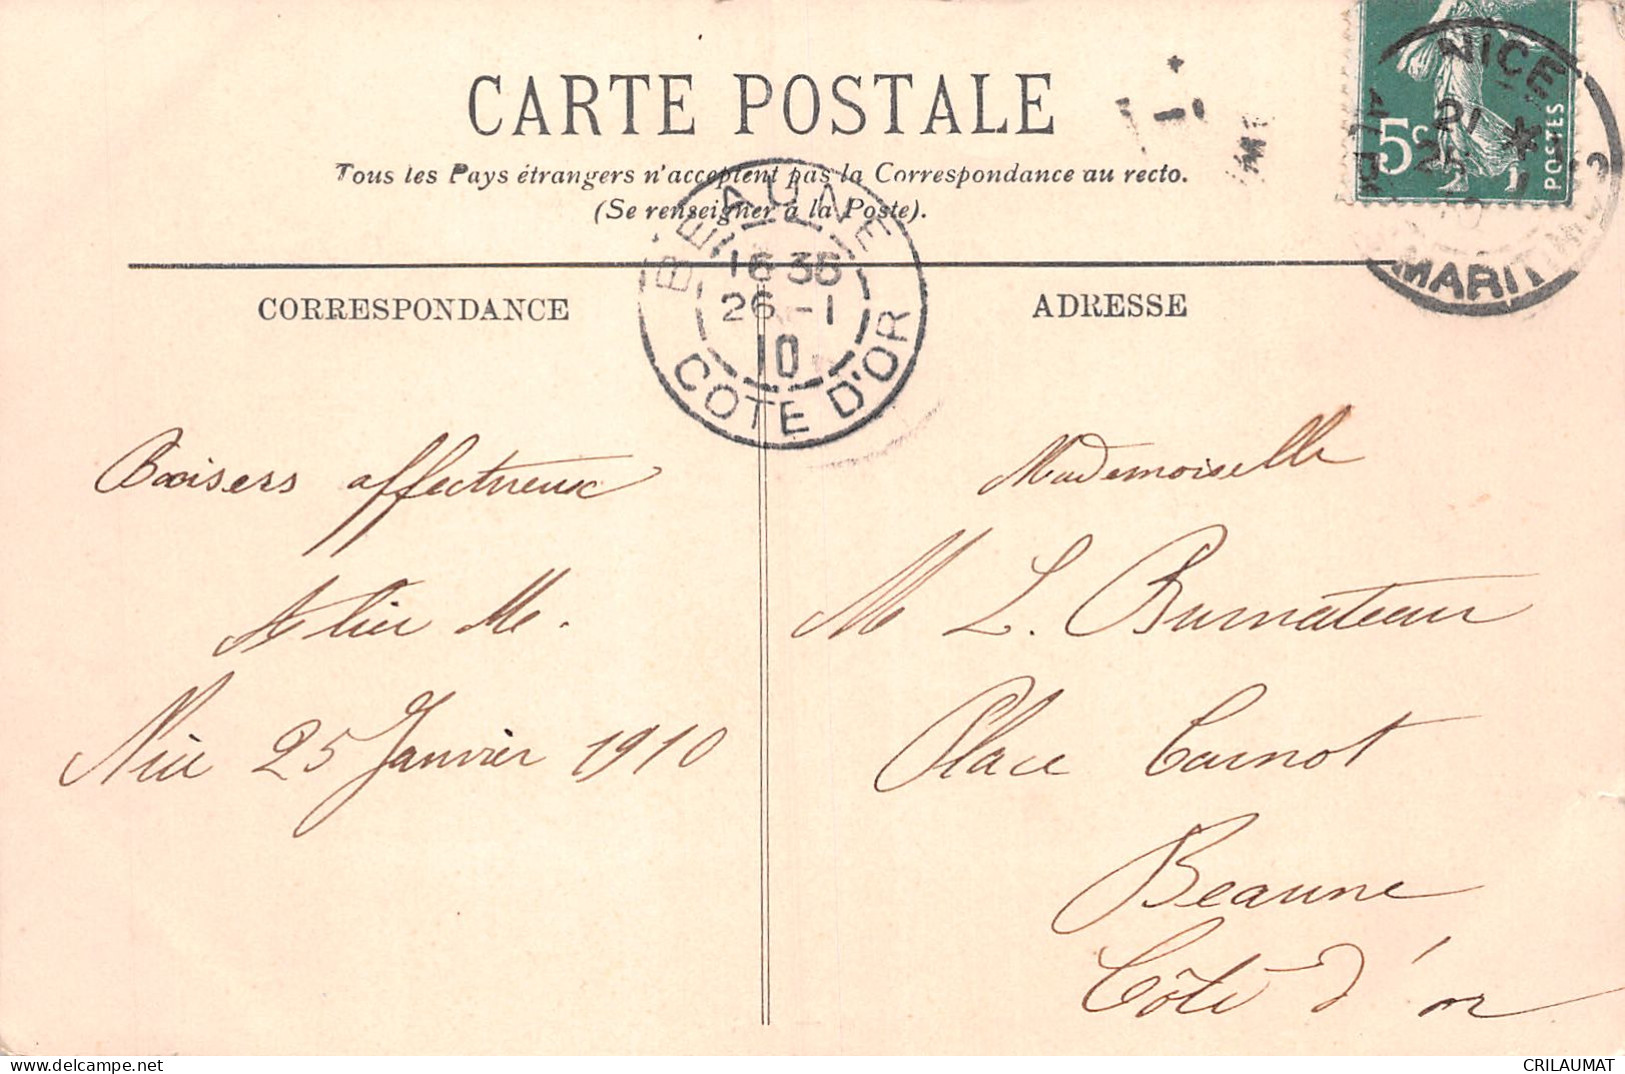 CARTE POSTALE
Tous les Pays étrangers n'acceptent pas la Correspondance au recto.
(Se renseigner à la Poste).
5c POSTES
NICE
21 *
25
MARITIMES
BEAUNE
16 35
26 -1
10
COTE D'OR
CORRESPONDANCE
Baisers affectueux
M.
Nice 25 Janvier 1910
ADRESSE
Mademoiselle
M L. Burnateau
Place Carnot
Beaune
Côte d'or
CRILAUMAT